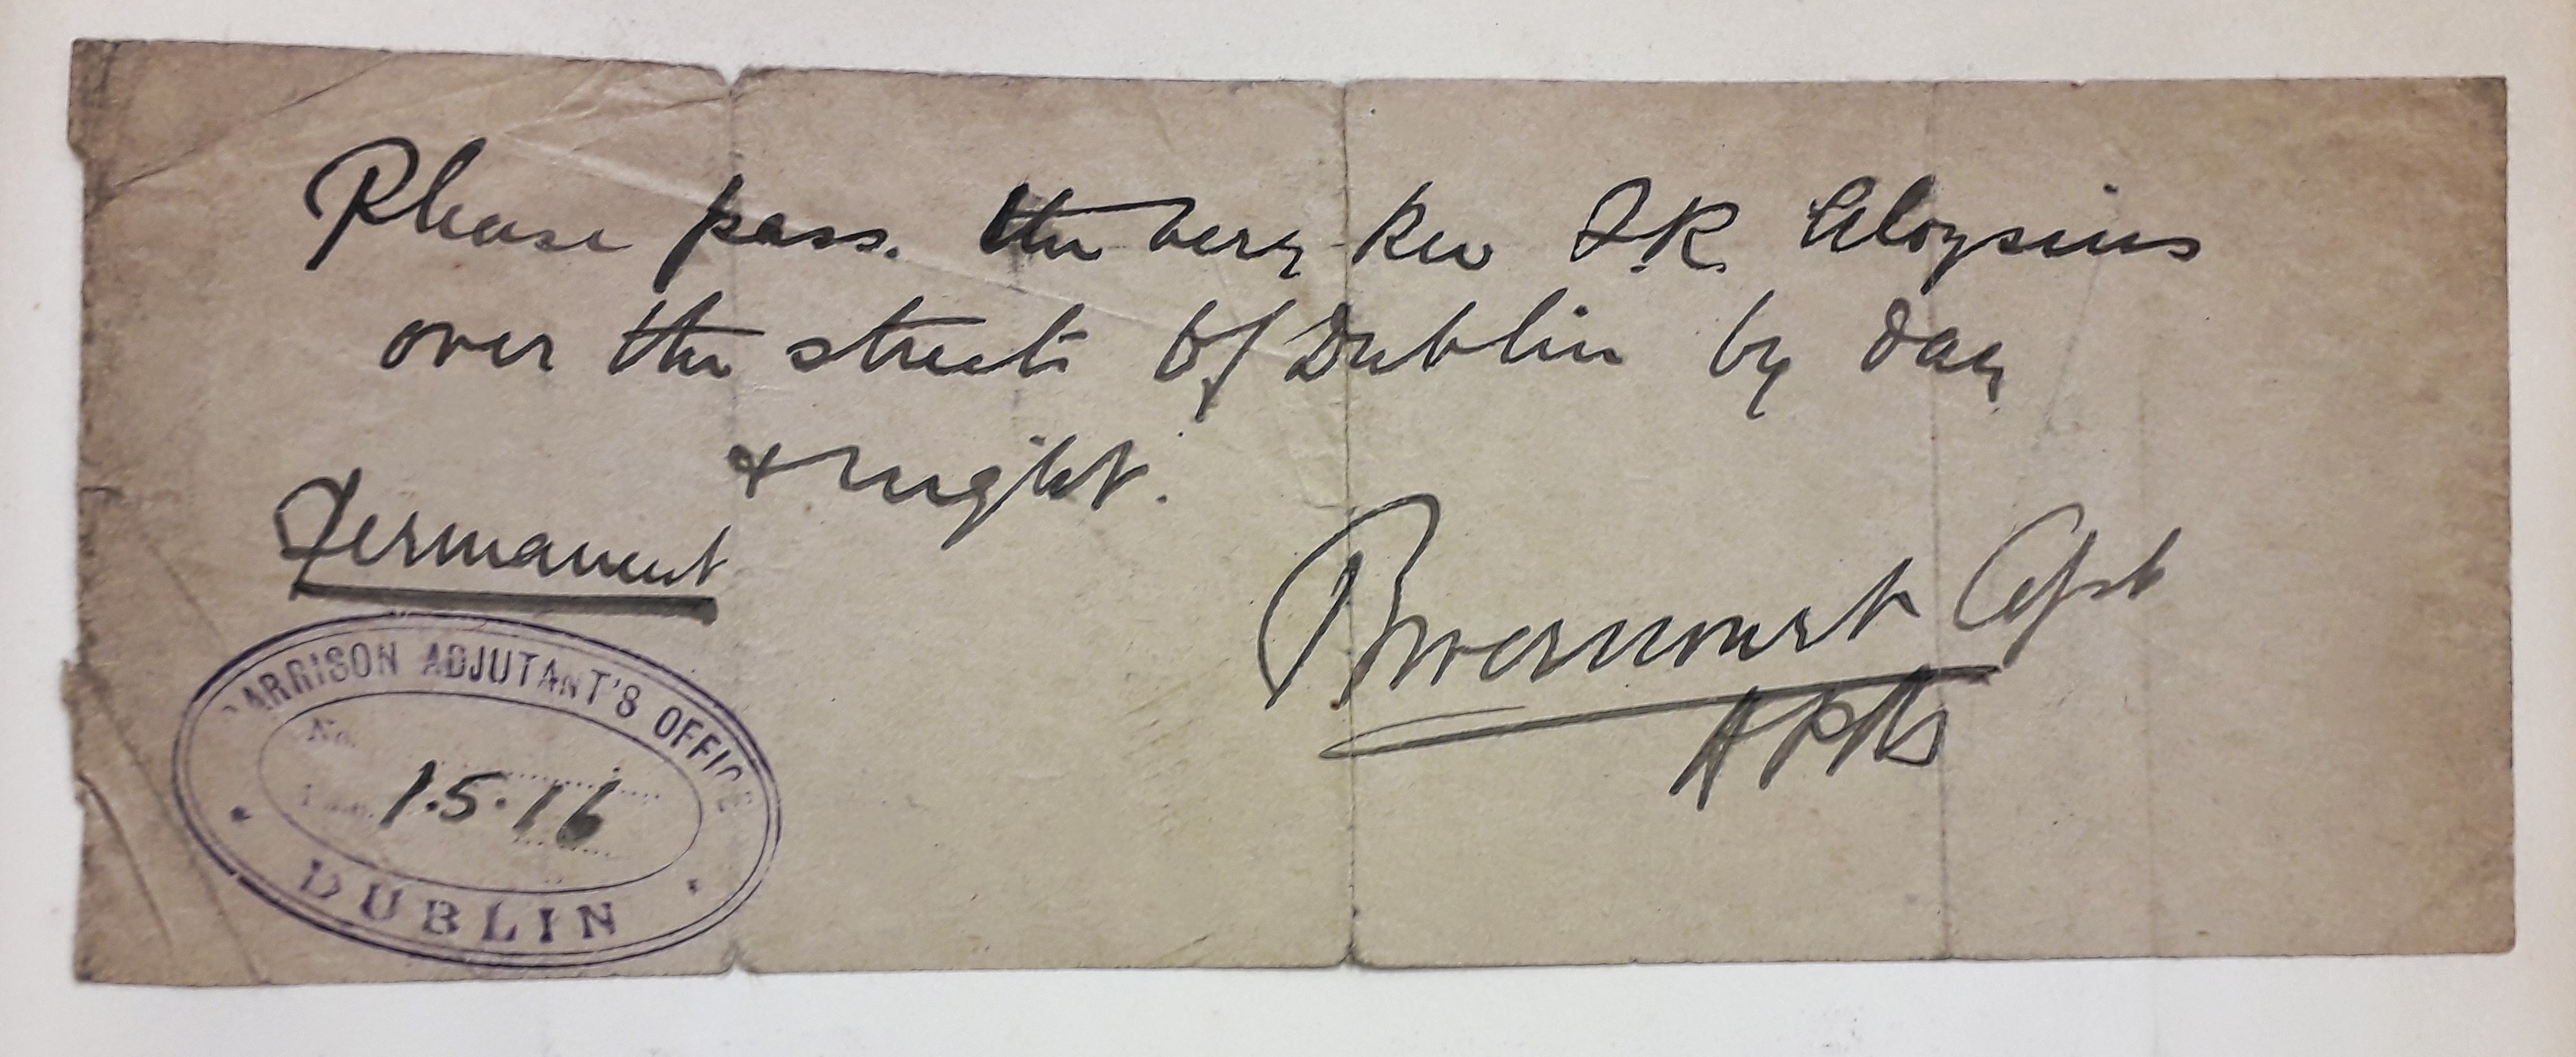 Please pass. the very Rev F.R. Aloysius
over the streets of Dublin by day
& night.
Permanent
Powerscourt Capt
APM
GARRISON ADJUTANT'S OFFICE
No.
1.5.16
DUBLIN